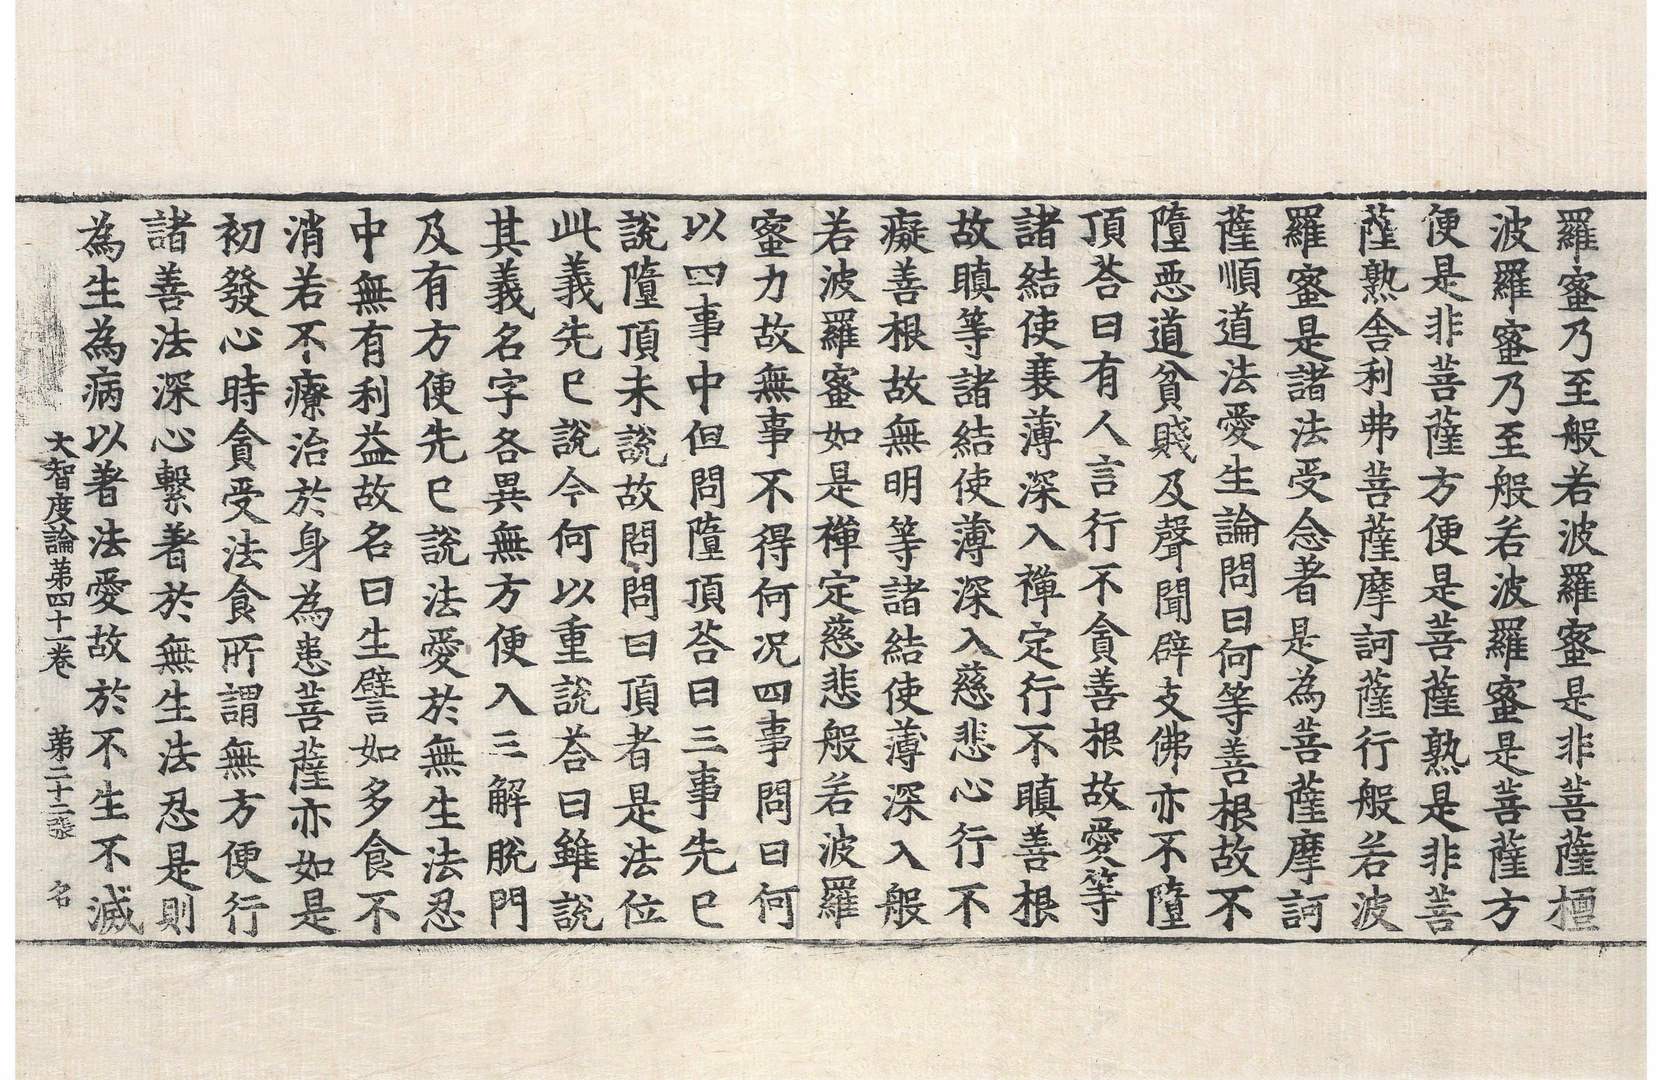 羅蜜乃至般若波羅蜜是非菩薩檀
波羅蜜乃至般若波羅蜜是菩薩方
便是非菩薩方便是菩薩熟是非菩
薩熟舍利弗菩薩摩訶薩行般若波
羅蜜是諸法受念著是為菩薩摩訶
薩順道法愛生論問曰何等善根故不
墮惡道貧賤及聲聞辟支佛亦不墮
頂荅曰有人言行不貪善根故愛等
諸結使衰薄深入禪定行不瞋善根
故瞋等諸結使薄深入慈悲心行不
癡善根故無明等諸結使薄深入般
若波羅蜜如是禪定慈悲般若波羅
蜜力故無事不得何況四事問曰何
以四事中但問墮頂荅曰三事先已
說墮頂未說故問問曰頂者是法位
此義先已說今何以重說荅曰雖說
其義名字各異無方便入三解脫門
及有方便先已說法愛於無生法忍
中無有利益故名曰生譬如多食不
消若不療治於身為患菩薩亦如是
初發心時貪受法食所謂無方便行
諸善法深心繫著於無生法忍是則
為生為病以著法愛故於不生不滅
大智度論第四十一卷　第二十二張　名